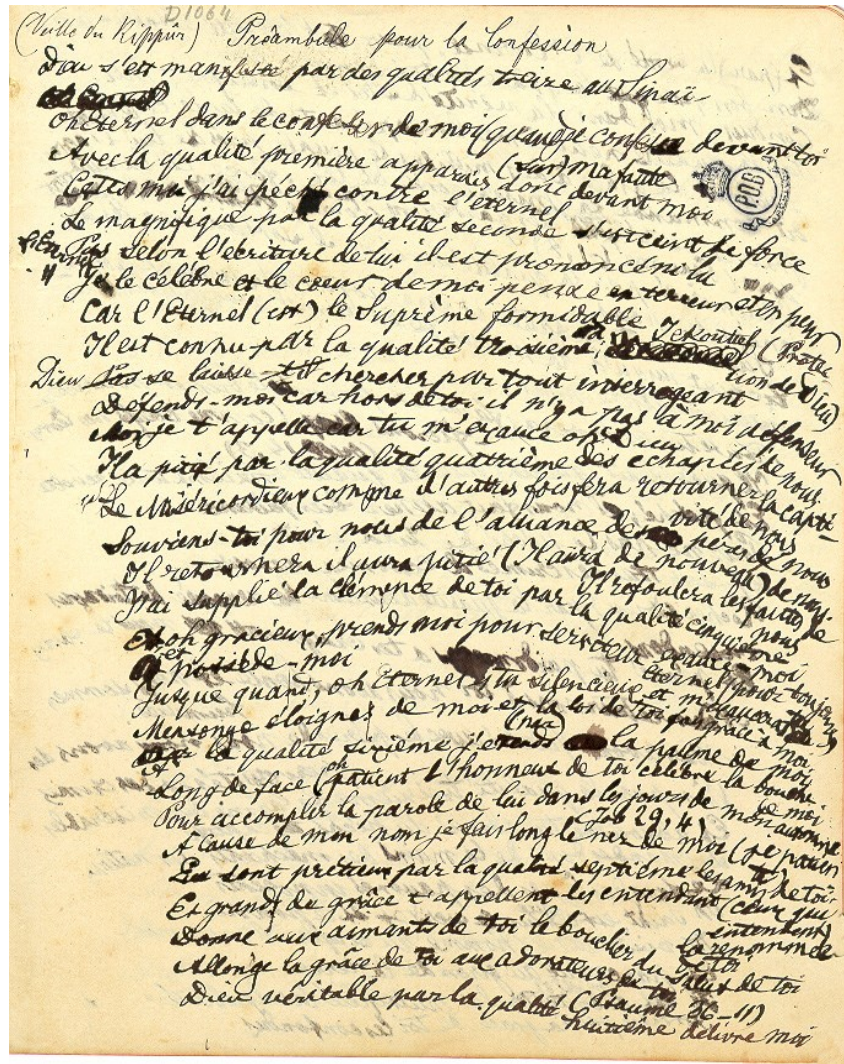 D1064
(Veille du Kippûr) Préambule pour la Confession
Dieu s'est manifesté par des qualités treize au Sinaï
Oh Eternel dans le confesser de moi (quand je confesse devant toi
(sur) ma faute
Avec la qualité première apparais donc devant moi
Certes moi j'ai péché contre l'eternel
Le magnifique par la qualité seconde s'est ceint de force
Pas selon l'écriture de lui il est prononcé ni lu
L'Eternel
Je le célèbre et le coeur de moi pense en terreur et en peur
Car l'Eternel (est) le Suprème formidable
Il est connu par la qualité troisième, Jekoutiel (Protection de Dieu)
Dieu se laisse chercher partout interrogeant
Défends-moi car hors de toi il n'y a pas à moi défenseur
Moi je t'appelle car tu m'exauce oh Dieu
Il a pitié par la qualité quatrième des échappés de nous
Le Miséricordieux comme d'autres fois fera retourner la captivité de nous
Souviens-toi pour nous de l'alliance des pères de nous
Il retournera il aura pitié (Il aura de nouveau) de nous
Il refoulera les fautes de nous
J'ai supplié la clémence de toi par la qualité cinquième
oh gracieux, prends moi pour serviteur
et possède-moi
Jusque quand, oh Eternel es tu silencieux
Mensonge éloignes de moi et la loi de toi fais grâce à moi
la qualité sixième j'étends la paume de moi
Long de face (oh patient) l'honneur de toi célèbre la bouche de moi
Pour accomplir la parole de lui dans les jours de mon automne
(Job 29, 4)
A cause de mon nom je fais long le nez de moi (je patiente)
sont prétieux par la qualité septième les amis de toi
Et grands de grâce t'appellent les entendant (ceux qui entendent)
la renommée de toi
Donne aux aimants de toi le bouclier du salut de toi
Allonge la grâce de toi aux adorateurs de toi
(Psaume 36-11)
Dieu véritable par la qualité huitième délivre moi